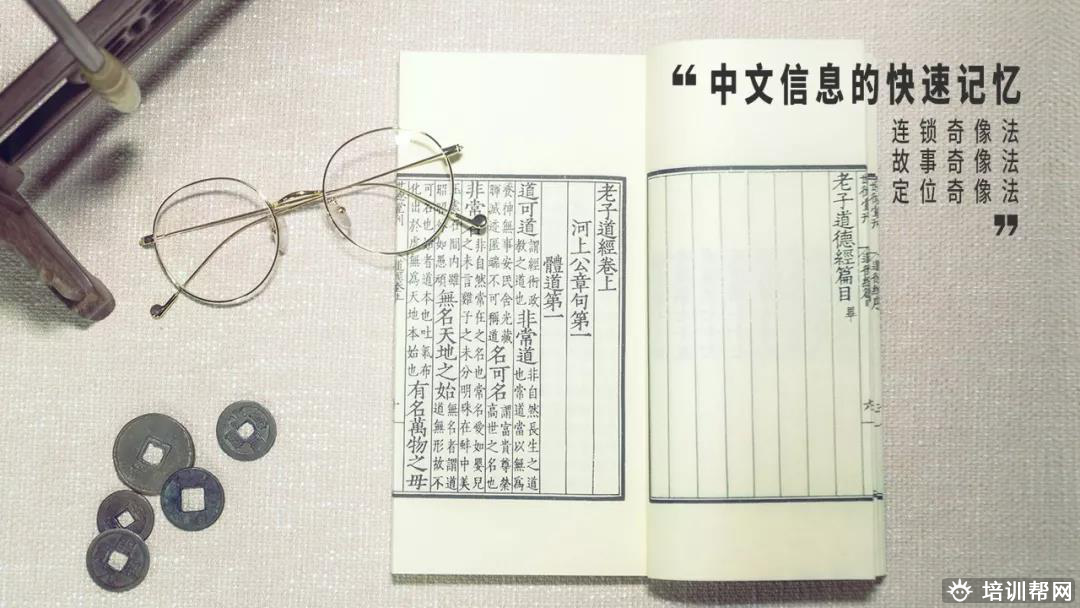 “中文信息的快速记忆
连锁奇像法
故事奇像法
定位奇像法
”
老子道德經篇目
畢
六
老子道經卷上
河上公章句第一
體道第一
道可道 謂經術政教之道也 非常道 非自然長生之道也常道當以無爲
養神無事安民含光藏暉滅迹匿端不可稱道 名可名 謂富貴尊榮高世之名也
非常名 非自然常在之名也常名愛如嬰兒之未言雞子之未分明珠在蚌中美
石間內雖昭昭如愚頑 無名天地之始 無名者謂道道無形故不
可名也者道本也吐氣布化出於虛無爲天地本始也 有名萬物之母
培训帮网